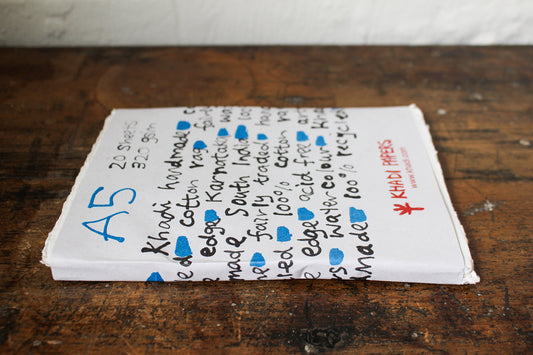 A5
20 SHEETS
320 gsm
Khadi handmade c
ed cotton rag fairly
e edge Karnataka
made South India 100
fairly traded
ed 100% cotton ra
e edge acid free ar
s water-colour
made 100% recycle
KHADI PAPERS
www.khadi.com